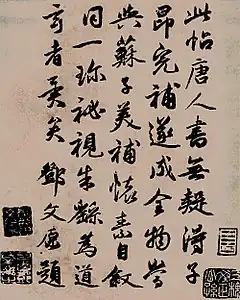 此帖唐人書無疑得子
昂完補遂成全物當
與蘇子美補懷素自敘
同一珎祕視朱繇為道
玄者異矣鄧文原題